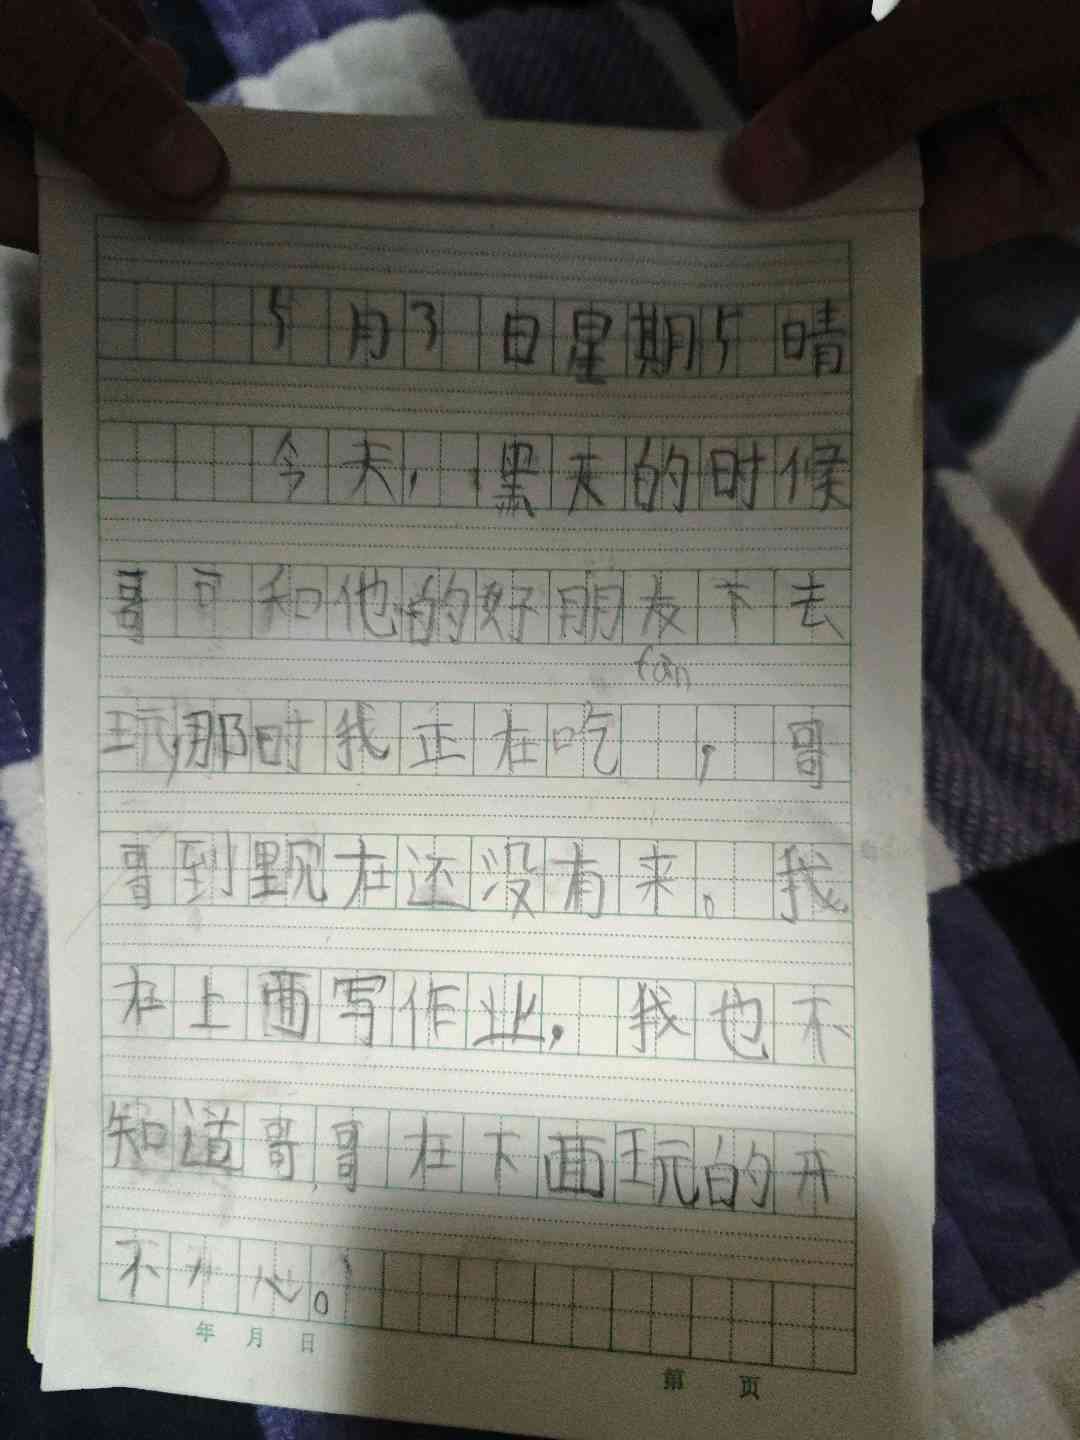 5月3日星期5晴
今天,黑天的时候
哥哥和他的好朋友下去
fàn
玩,那时我正在吃 ,哥
哥到现在还没有来。我
在上面写作业,我也不
知道哥哥在下面玩的开
不 心。
年 月 日
第 页